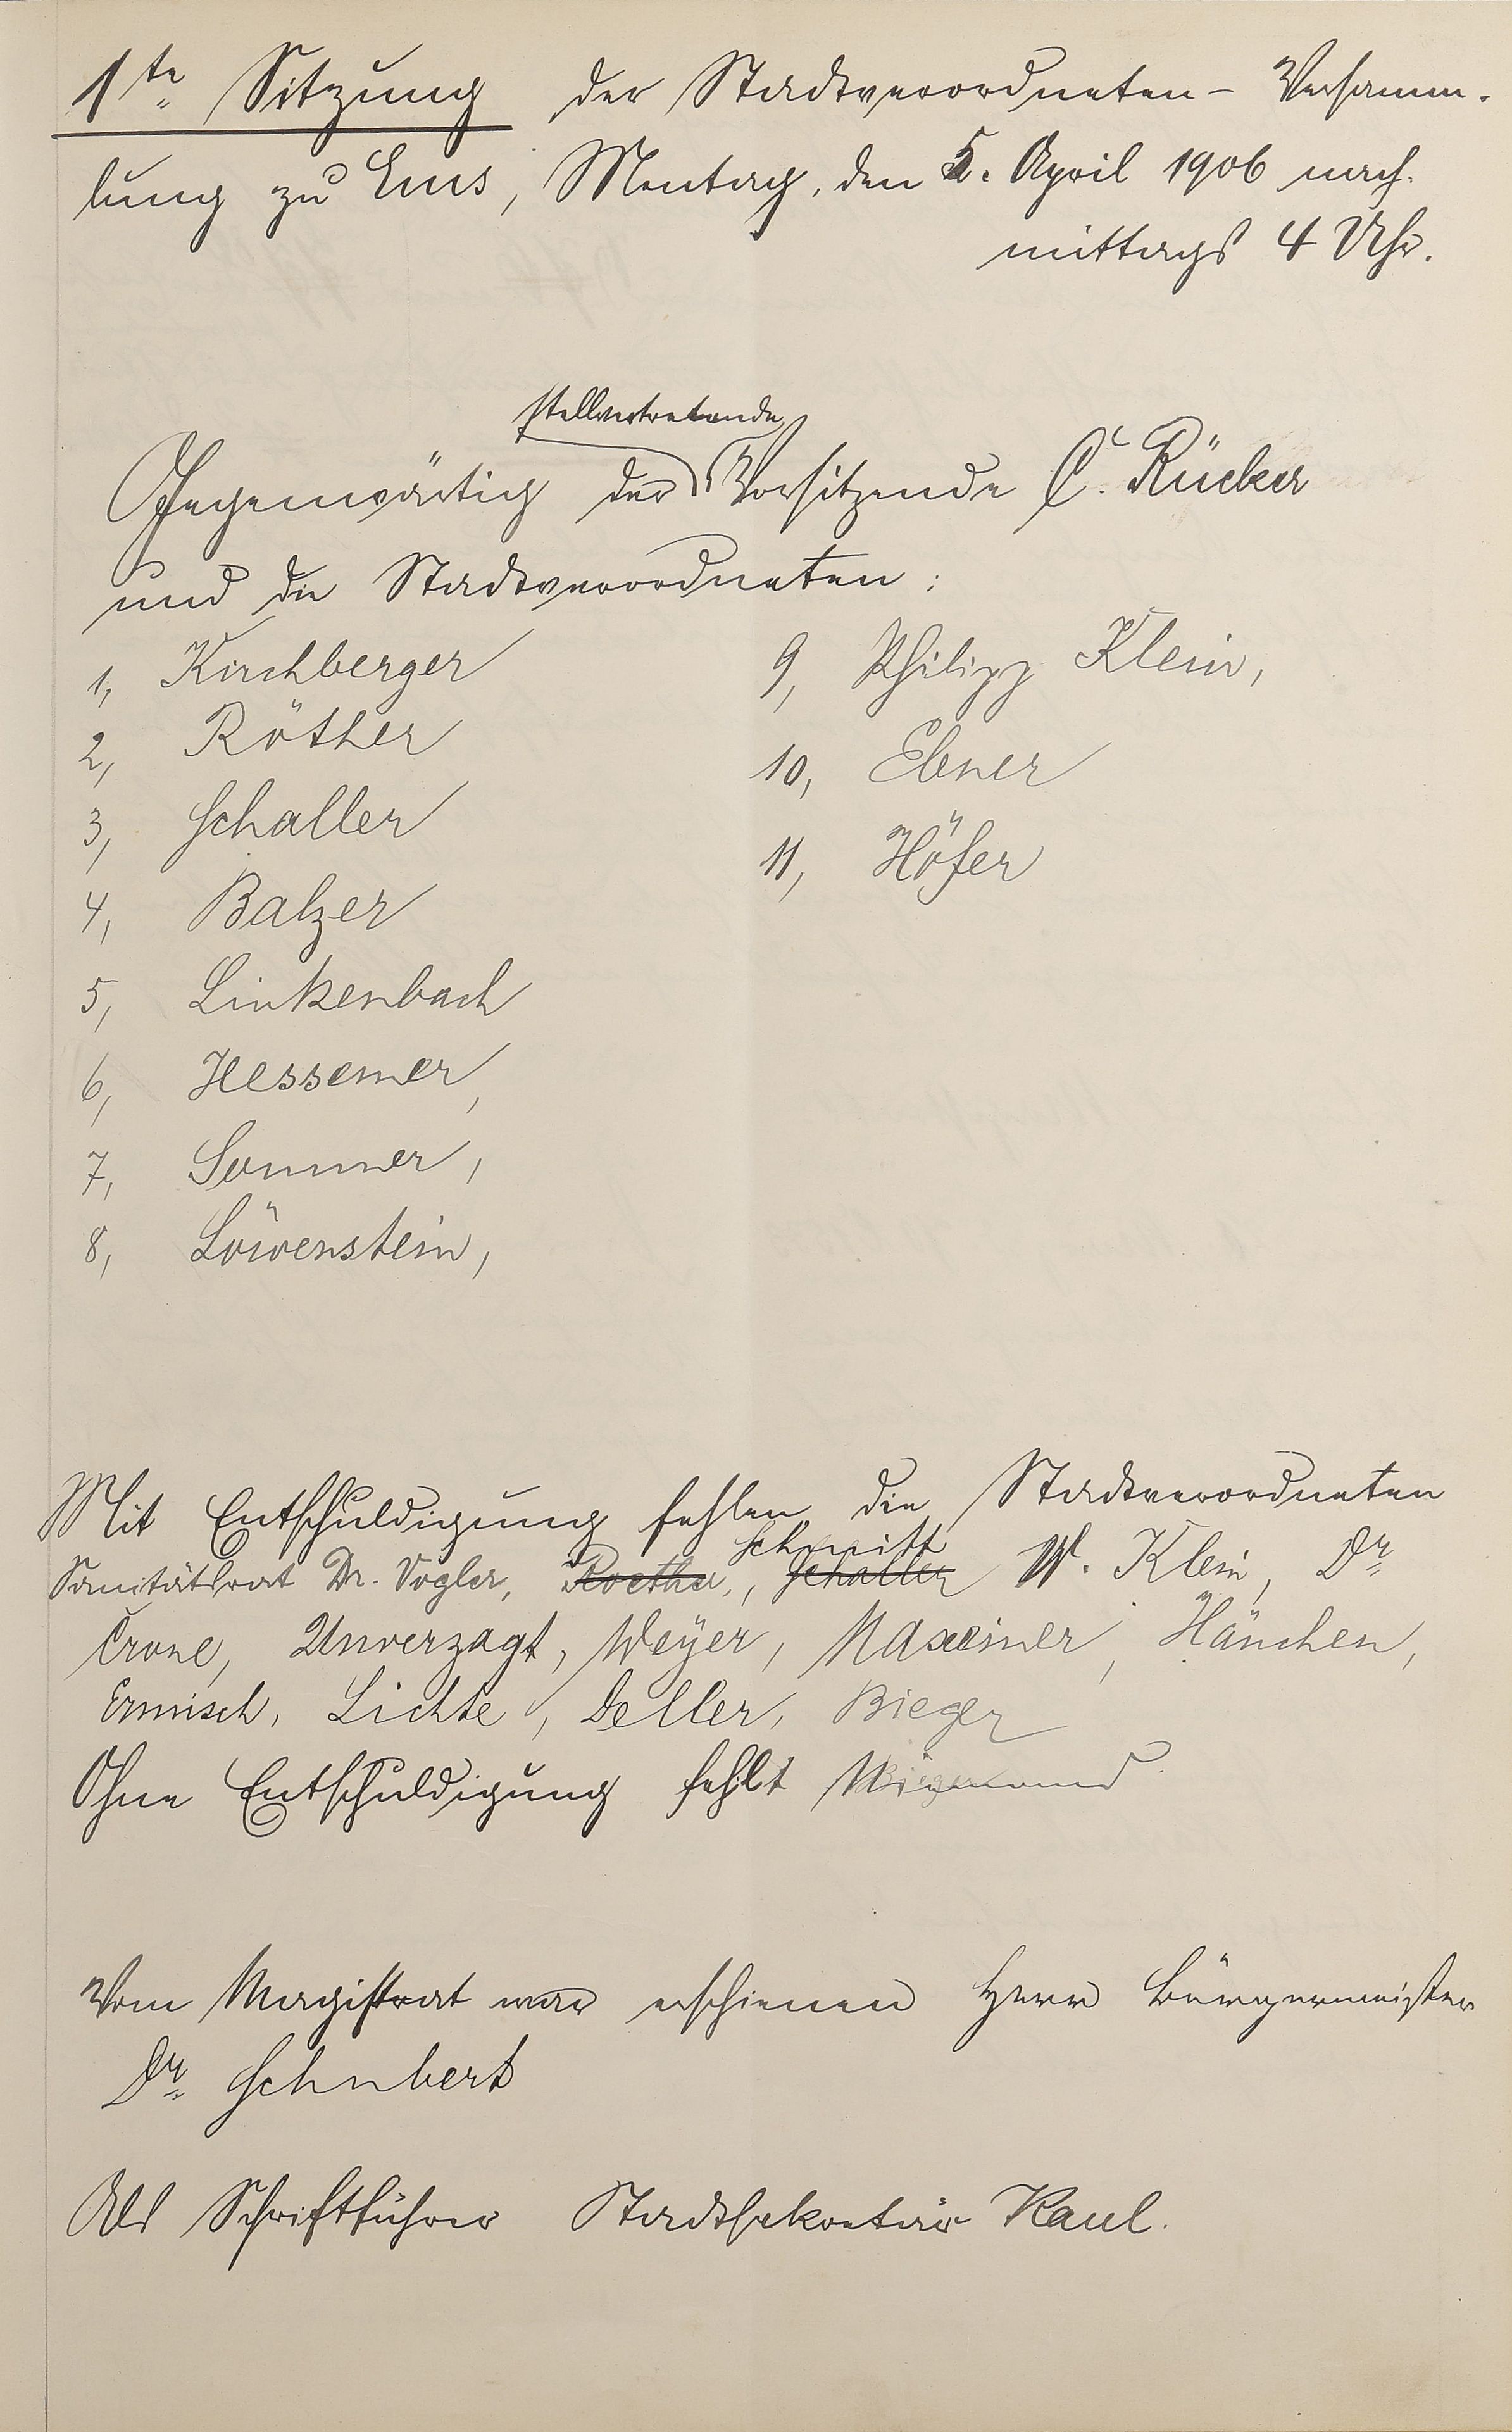 1te Sitzung der Stadtverordneten- Versamm-
lung zu Ems, Montag, den 5. April 1906 nach-
mittags 4 Uhr.
stellvertretende
Gegenwärtig der Vorsitzende C. Rücker
und die Stadtverordneten:
1, Kirchberger
2, Röther
3, Schaller
4, Balzer
5, Linkenbach
6, Hessemer,
7, Sommer,
8, Löwenstein,
9, Philipp Klein,
10, Ebner
11, Höfer
Mit Entschuldigung fehlen die Stadtverordneten
Schmitt
Sanitätsrat Dr. Vogler, Roether, Schaller W. Klein, Dr.
Crone, Unverzagt, Weyer, Maxeiner, Hänchen,
Ermisch, Lichte, Deller, Bieger
Ohne Entschuldigung fehlt Niemand
Vom Magistrat war erschienen Herr Bürgermeister
Dr. Schubert
Als Schriftführer Stadtsekretär Kaul.